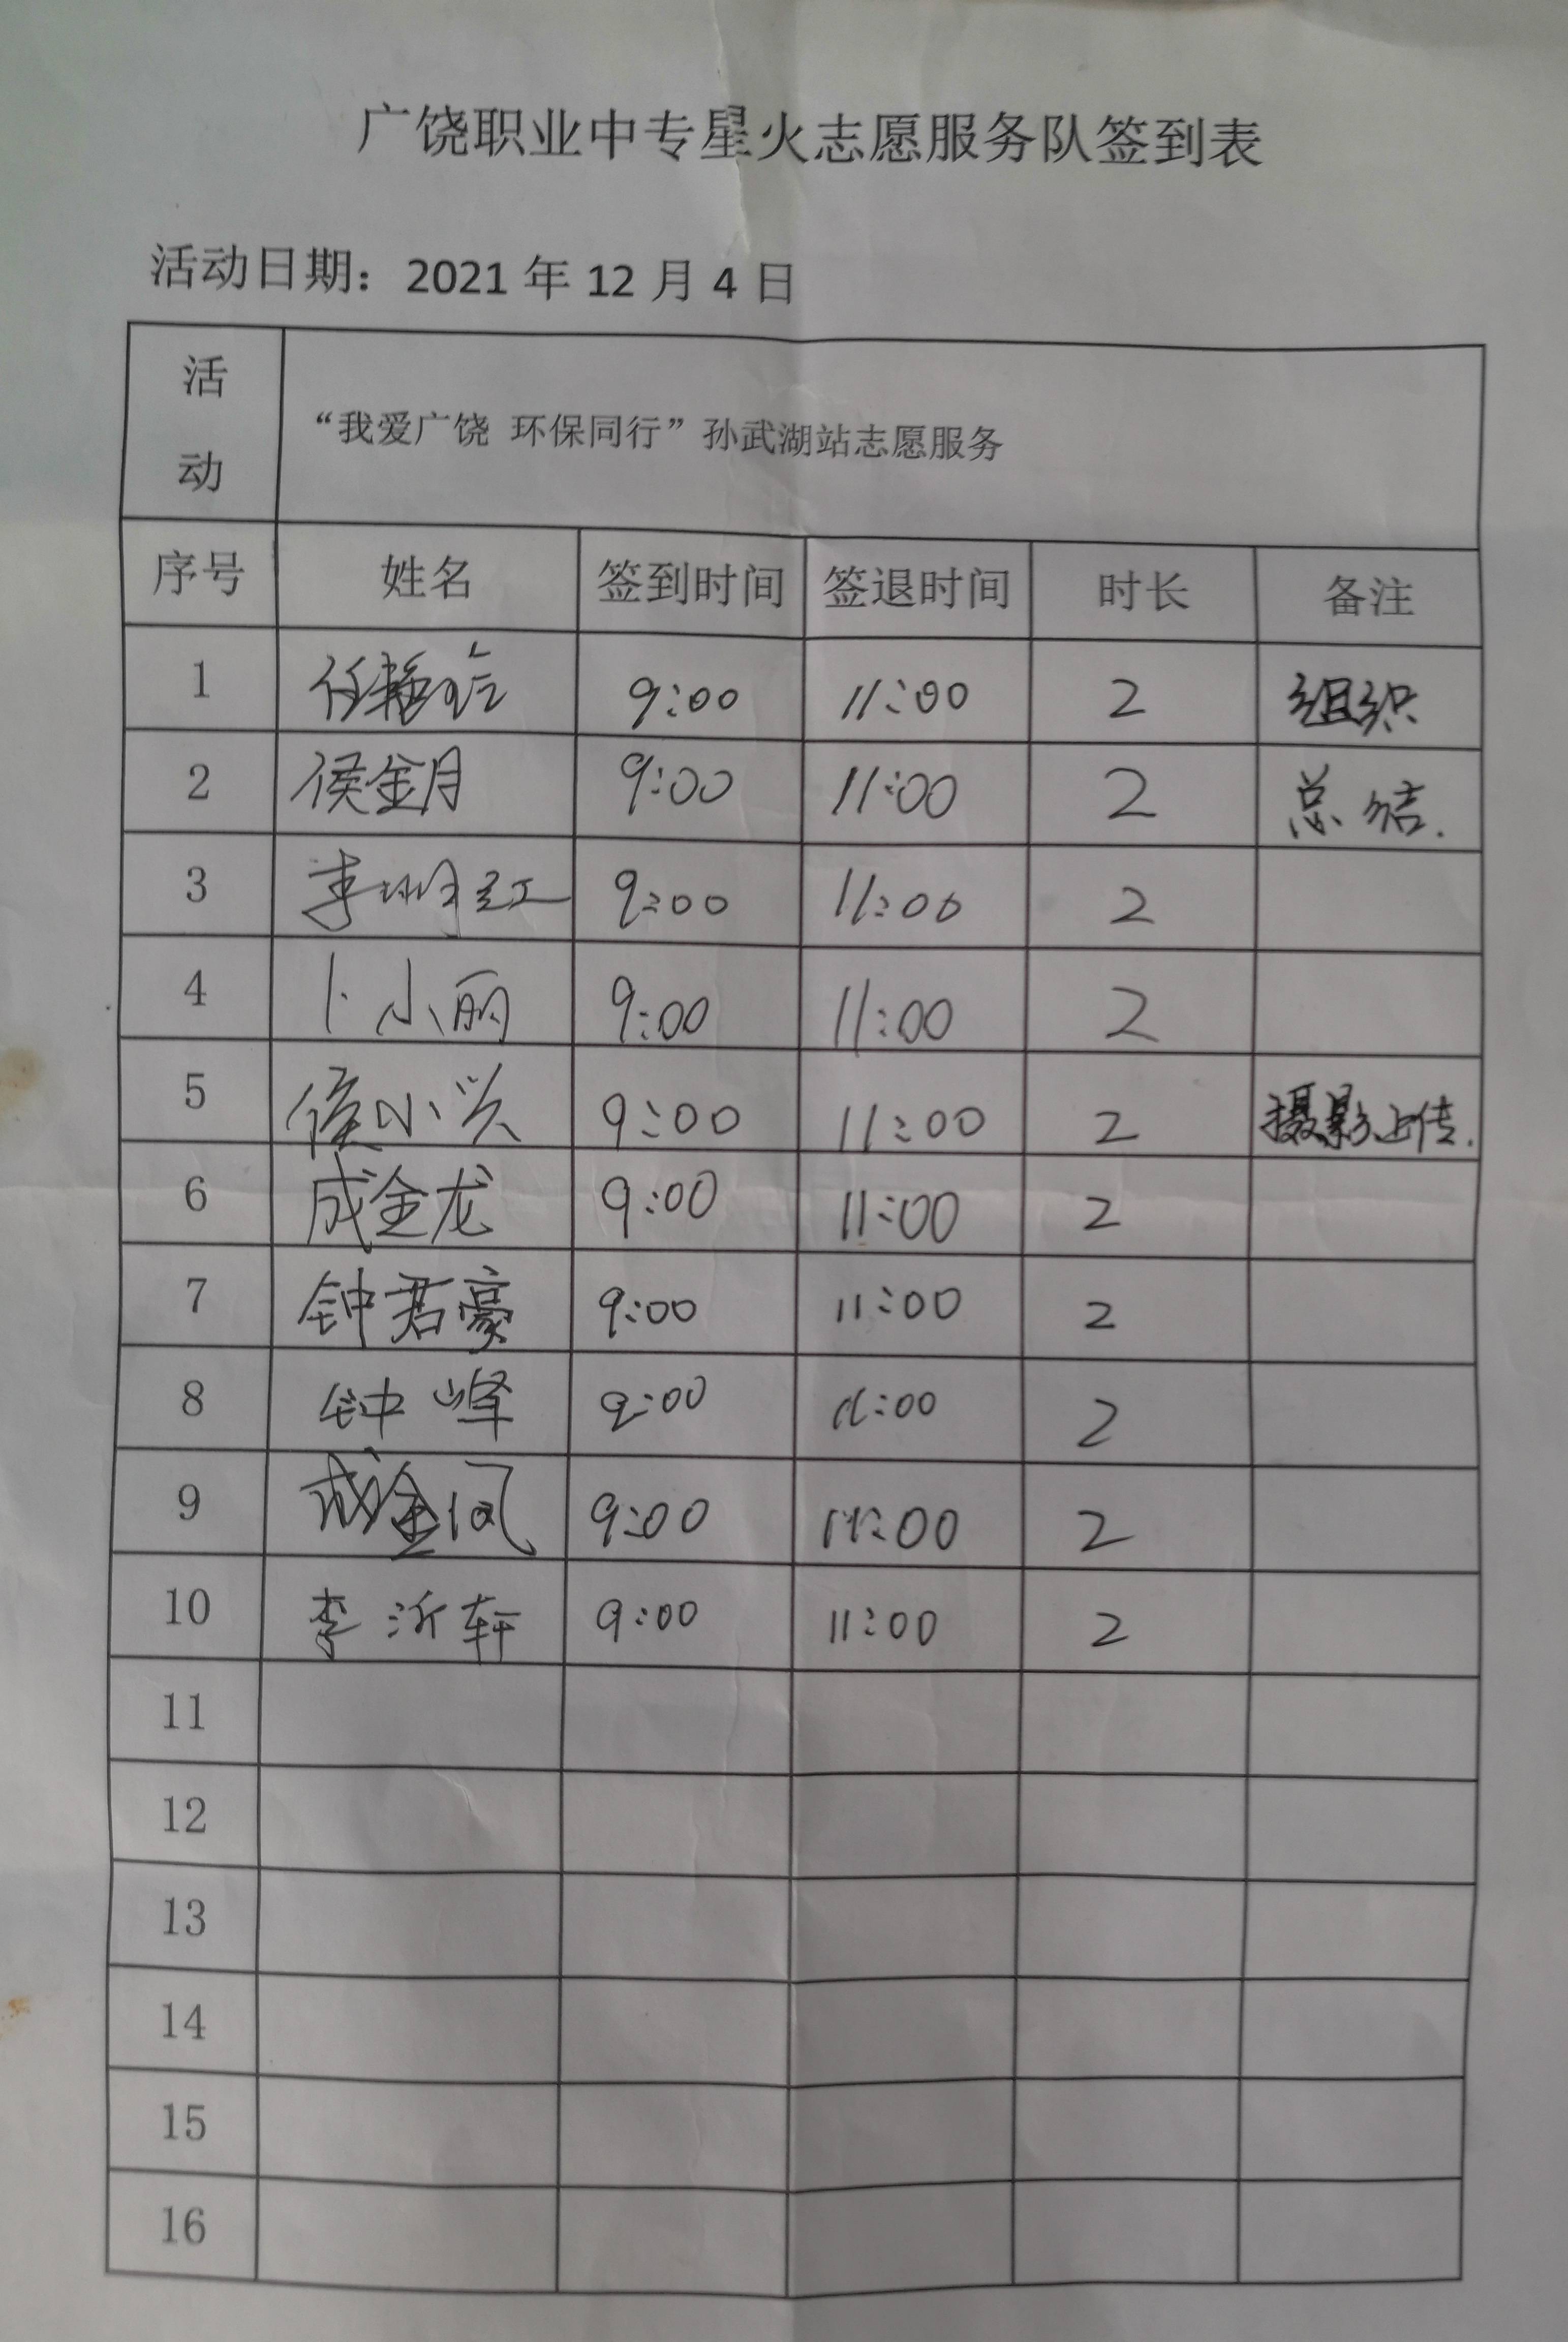 广饶职业中专星火志愿服务队签到表
活动日期：2021 年 12 月 4 日
活动 “我爱广饶 环保同行”孙武湖站志愿服务
序号 姓名 签到时间 签退时间 时长 备注
1 任艳 9:00 11:00 2 组织
2 侯金月 9:00 11:00 2 总结.
3 李明红 9:00 11:00 2
4 卜小丽 9:00 11:00 2
5 侯小兴 9:00 11:00 2 摄影上传.
6 成金龙 9:00 11:00 2
7 钟君豪 9:00 11:00 2
8 钟峰 9:00 11:00 2
9 成金凤 9:00 11:00 2
10 李沂轩 9:00 11:00 2
11
12
13
14
15
16